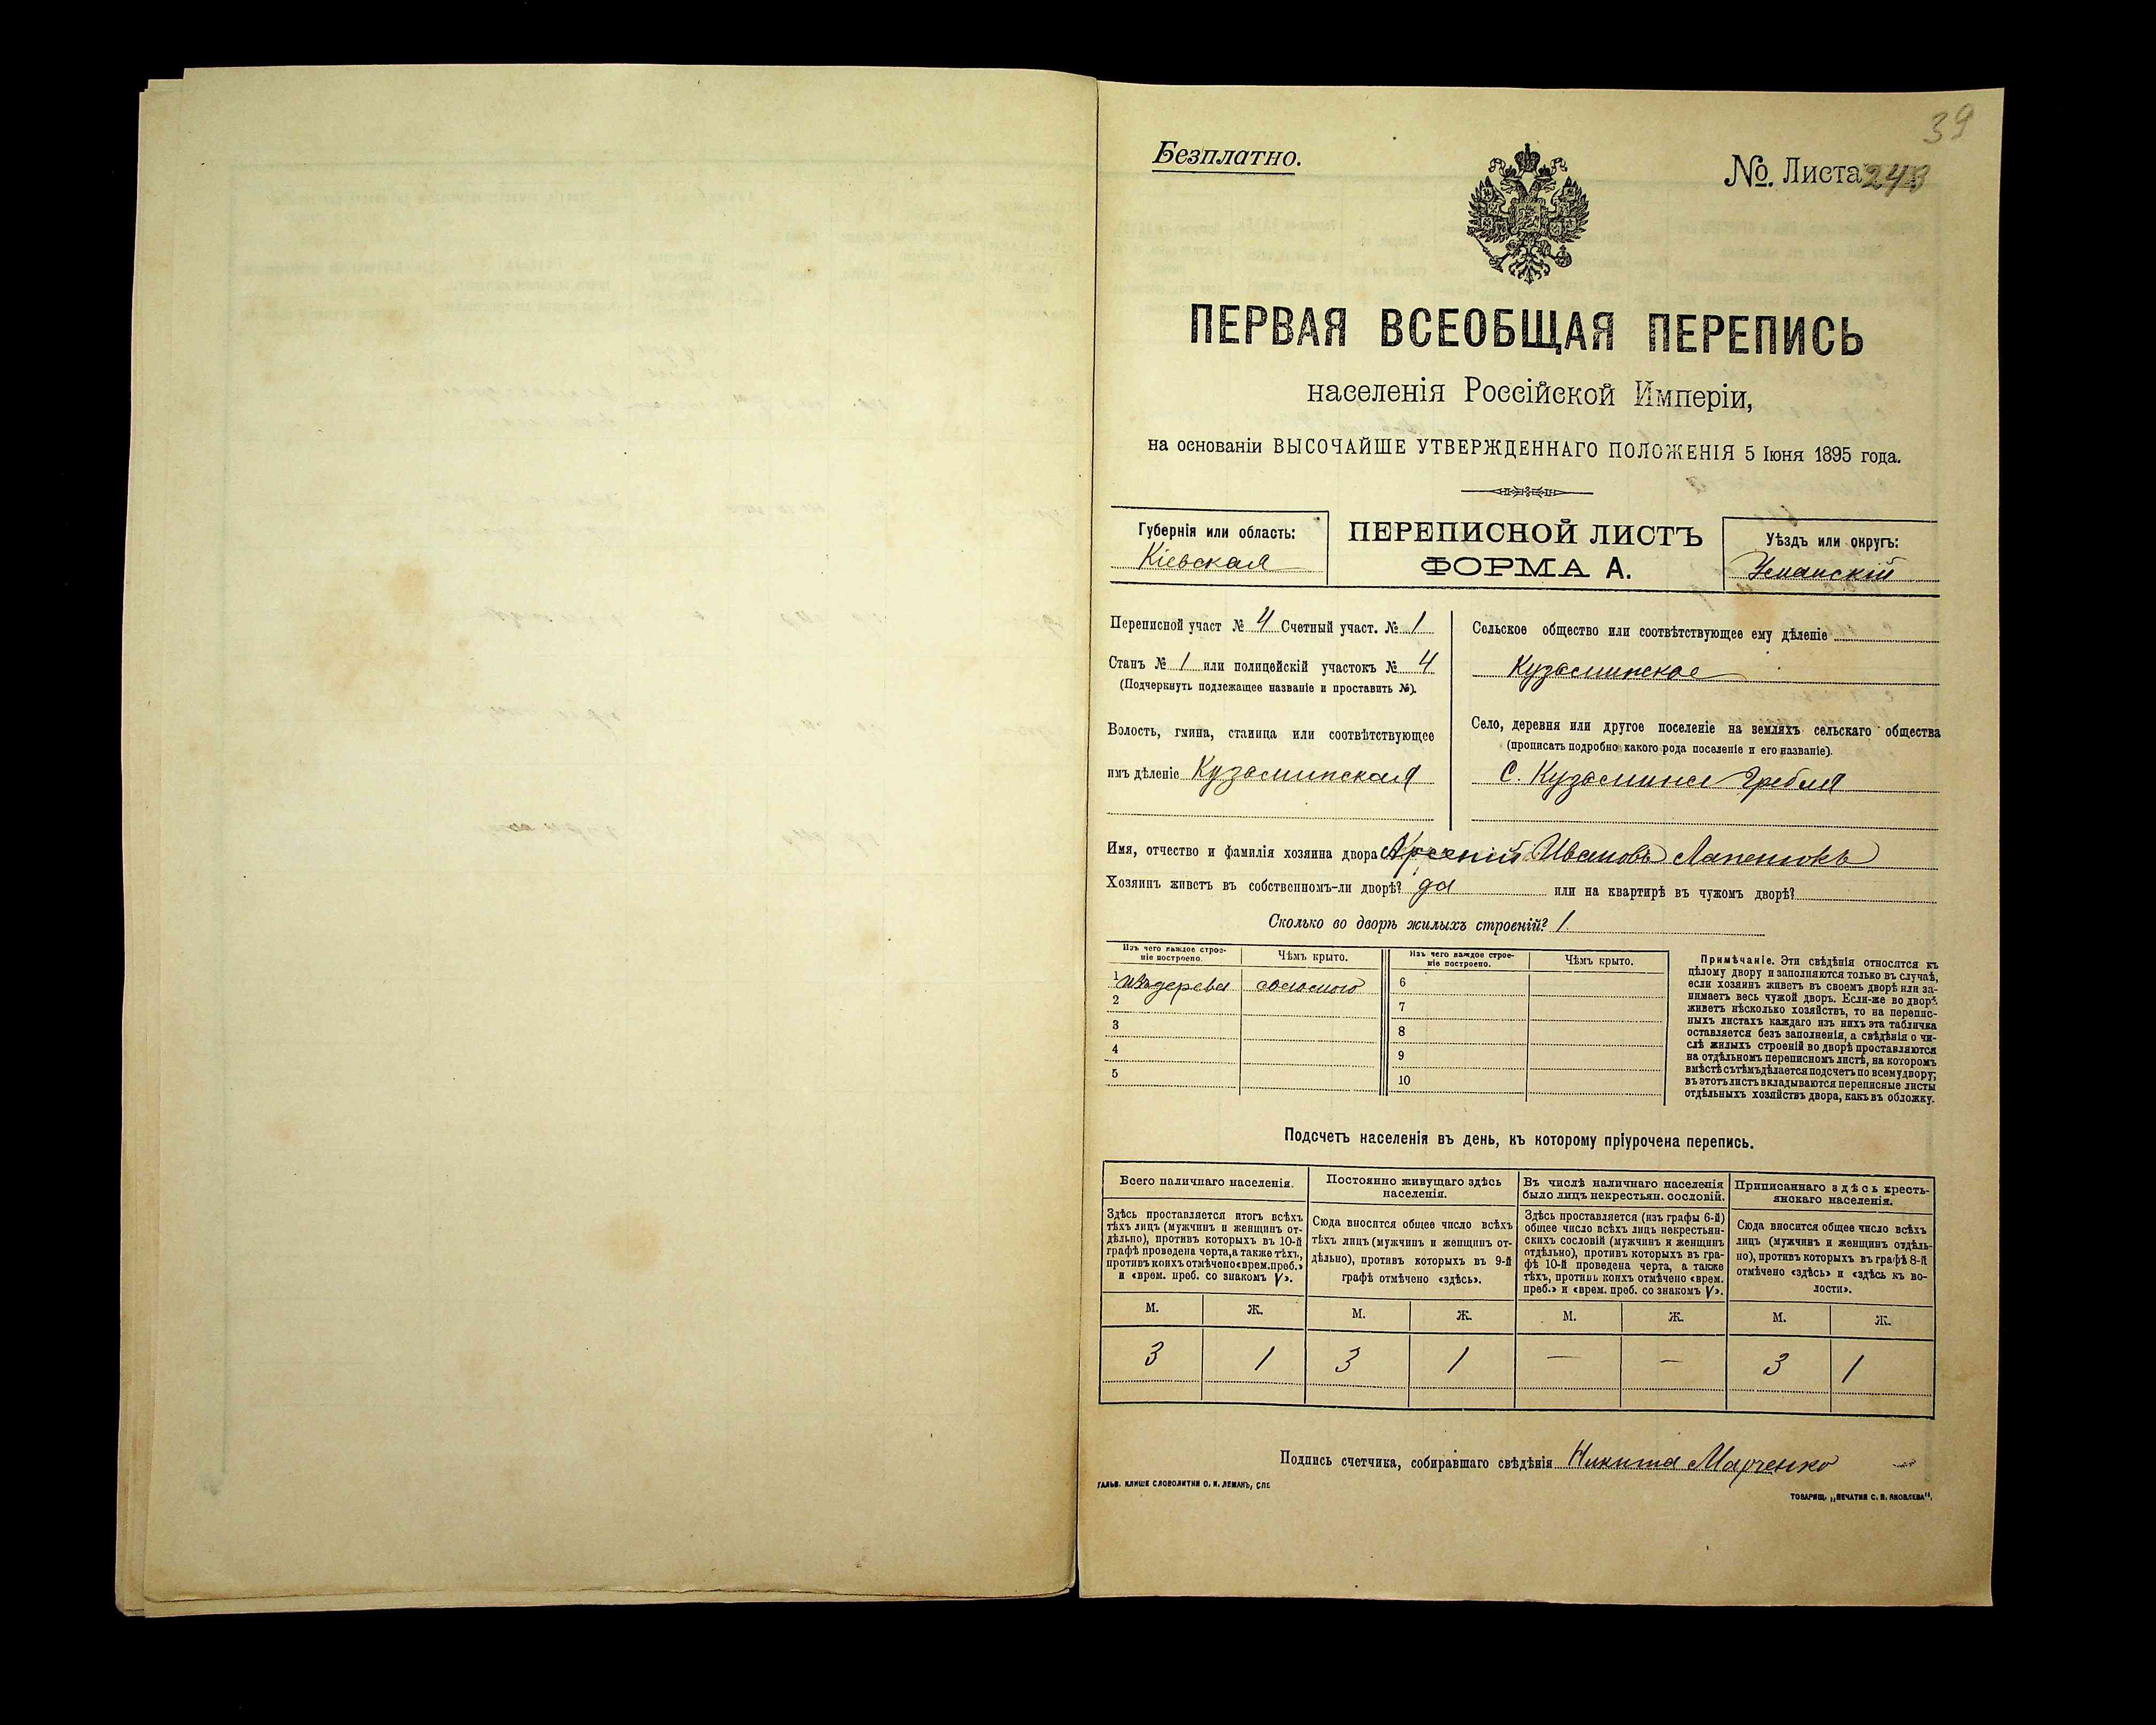 39
Безплатно.
№. Листа 243
ПЕРВАЯ ВСЕОБЩАЯ ПЕРЕПИСЬ
населенія Россійской Имперіи,
на основаніи ВЫСОЧАЙШЕ УТВЕРЖДЕННАГО ПОЛОЖЕНІЯ 5 Іюня 1895 года.
Губернія или область:
Кіевская
ПЕРЕПИСНОЙ ЛИСТЪ
ФОРМА А.
Уѣздъ или округъ:
Уманскій
Переписной участ № 4 Счетный участ. № 1
Станъ № 1 или полицейскій участокъ № 4
(Подчеркнуть подлежащее названіе и проставить №).
Волость, гмина, станица или соотвѣтствующее
имъ дѣленіе Кузьминская
Сельское общество или соотвѣтствующее ему дѣленіе
Кузьминское
Село, деревня или другое поселеніе на земляхъ сельскаго общества
(прописать подробно какого рода поселеніе и его названіе).
С. Кузьмина Гребля
Имя, отчество и фамилія хозяина двора Арсеній Ивановъ Лапенюкъ
Хозяинъ живетъ въ собственномъ-ли дворѣ? да или на квартирѣ въ чужомъ дворѣ?
Сколько во дворѣ жилыхъ строеній? 1
Изъ чего каждое строе-
ніе построено.
Чѣмъ крыто.
Изъ чего каждое строе-
ніе построено.
Чѣмъ крыто.
1 изъ дерева соломою 6
2 7
3 8
4 9
5 10
Примѣчаніе. Эти свѣдѣнія относятся къ
цѣлому двору и заполняются только въ случаѣ,
если хозяинъ живетъ въ своемъ дворѣ или за-
нимаетъ весь чужой дворъ. Если-же во дворѣ
живетъ нѣсколько хозяйствъ, то на перепис-
ныхъ листахъ каждаго изъ нихъ эта табличка
оставляется безъ заполненія, а свѣдѣнія о чи-
слѣ жилыхъ строеній во дворѣ проставляются
на отдѣльномъ переписномъ листѣ, на которомъ
вмѣстѣ съ тѣмъ дѣлается подсчетъ по всему двору;
въ этотъ листъ вкладываются переписные листы
отдѣльныхъ хозяйствъ двора, какъ въ обложку.
Подсчетъ населенія въ день, къ которому пріурочена перепись.
Всего наличнаго населенія.
Здѣсь проставляется итогъ всѣхъ
тѣхъ лицъ (мужчинъ и женщинъ от-
дѣльно), противъ которыхъ въ 10-й
графѣ проведена черта, а также тѣхъ,
противъ коихъ отмѣчено «врем. преб.»
и «врем. преб. со знакомъ V».
Постоянно живущаго здѣсь
населенія.
Сюда вносится общее число всѣхъ
тѣхъ лицъ (мужчинъ и женщинъ от-
дѣльно), противъ которыхъ въ 9-й
графѣ отмѣчено «здѣсь».
Въ числѣ наличнаго населенія
было лицъ некрестьян. сословій.
Здѣсь проставляется (изъ графы 6-й)
общее число всѣхъ лицъ некрестьян-
скихъ сословій (мужчинъ и женщинъ
отдѣльно), противъ которыхъ въ гра-
фѣ 10-й проведена черта, а также
тѣхъ, противъ коихъ отмѣчено «врем.
преб.» и «врем. преб. со знакомъ V».
Приписаннаго здѣсь кресть-
янскаго населенія.
Сюда вносится общее число всѣхъ
лицъ (мужчинъ и женщинъ отдѣль-
но), противъ которыхъ въ графѣ 8-й
отмѣчено «здѣсь» и «здѣсь къ во-
лости».
М. Ж. М. Ж. М. Ж. М. Ж.
3 1 3 1 — — 3 1
Подпись счетчика, собиравшаго свѣдѣнія Никита Марченко
ГАЛЬВ. КЛИШЕ СЛОВОЛИТНИ О. И. ЛЕМАНЪ, СПБ.
ТОВАРИЩ. „ПЕЧАТНЯ С. П. ЯКОВЛЕВА".